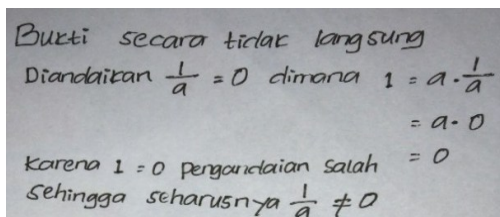 Bukti secara tidak langsung
Diandaikan 1/a = 0 dimana 1 = a · 1/a
= a · 0
= 0
karena 1 = 0 pengandaian salah
sehingga seharusnya 1/a ≠ 0